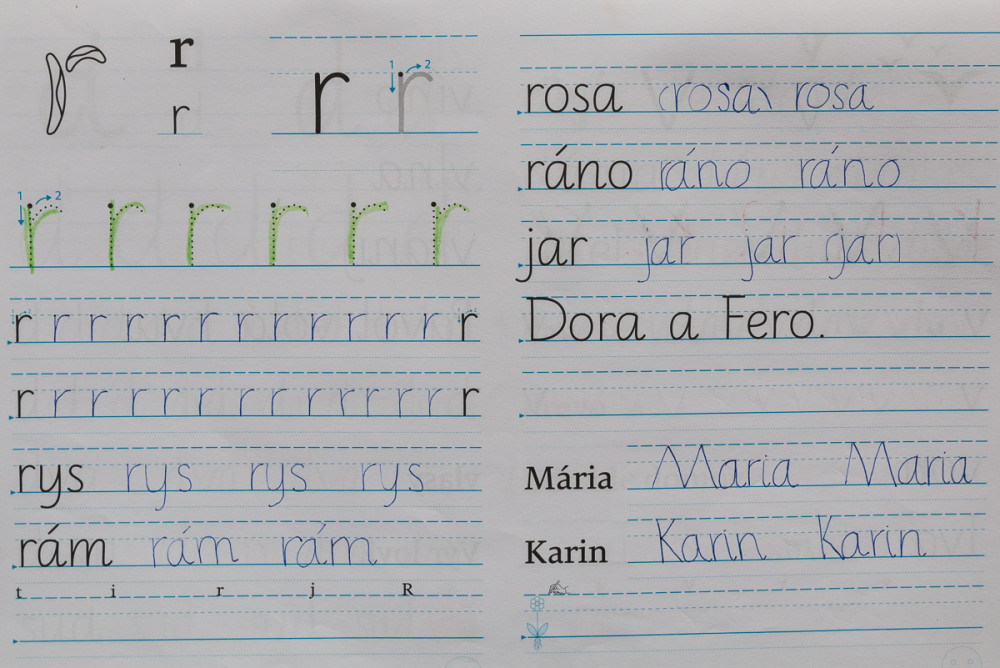 r
r
r 1 2 r
1 2 r r r r r r
r r r r r r r r r r r r r
r r r r r r r r r r r r r
rys rys rys rys
rám rám rám
t i r j R
rosa (rosa) rosa
ráno ráno ráno
jar jar jar
Dora a Fero.
Mária Maria Maria
Karin Karin Karin